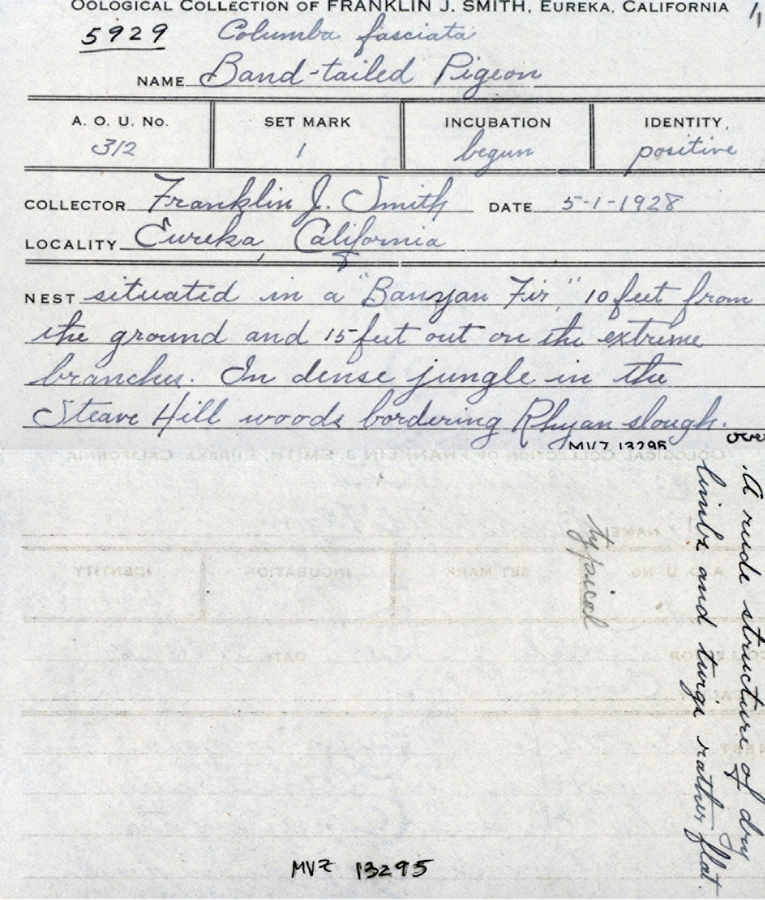 OOLOGICAL COLLECTION OF FRANKLIN J. SMITH, EUREKA, CALIFORNIA
5929 Columba fasciata
NAME Band-tailed Pigeon
A. O. U. No. SET MARK INCUBATION IDENTITY
312 1 begun positive
COLLECTOR Franklin J. Smith DATE 5-1-1928
LOCALITY Eureka, California
NEST situated in a "Banyan Fir," 10 feet from
the ground and 15 feet out on the extreme
branches. In dense jungle in the
Steave Hill woods bordering Rhyan slough.
MVZ 13295
over
A rude structure of dry
limbs and twigs rather flat.
typical
MVZ 13295